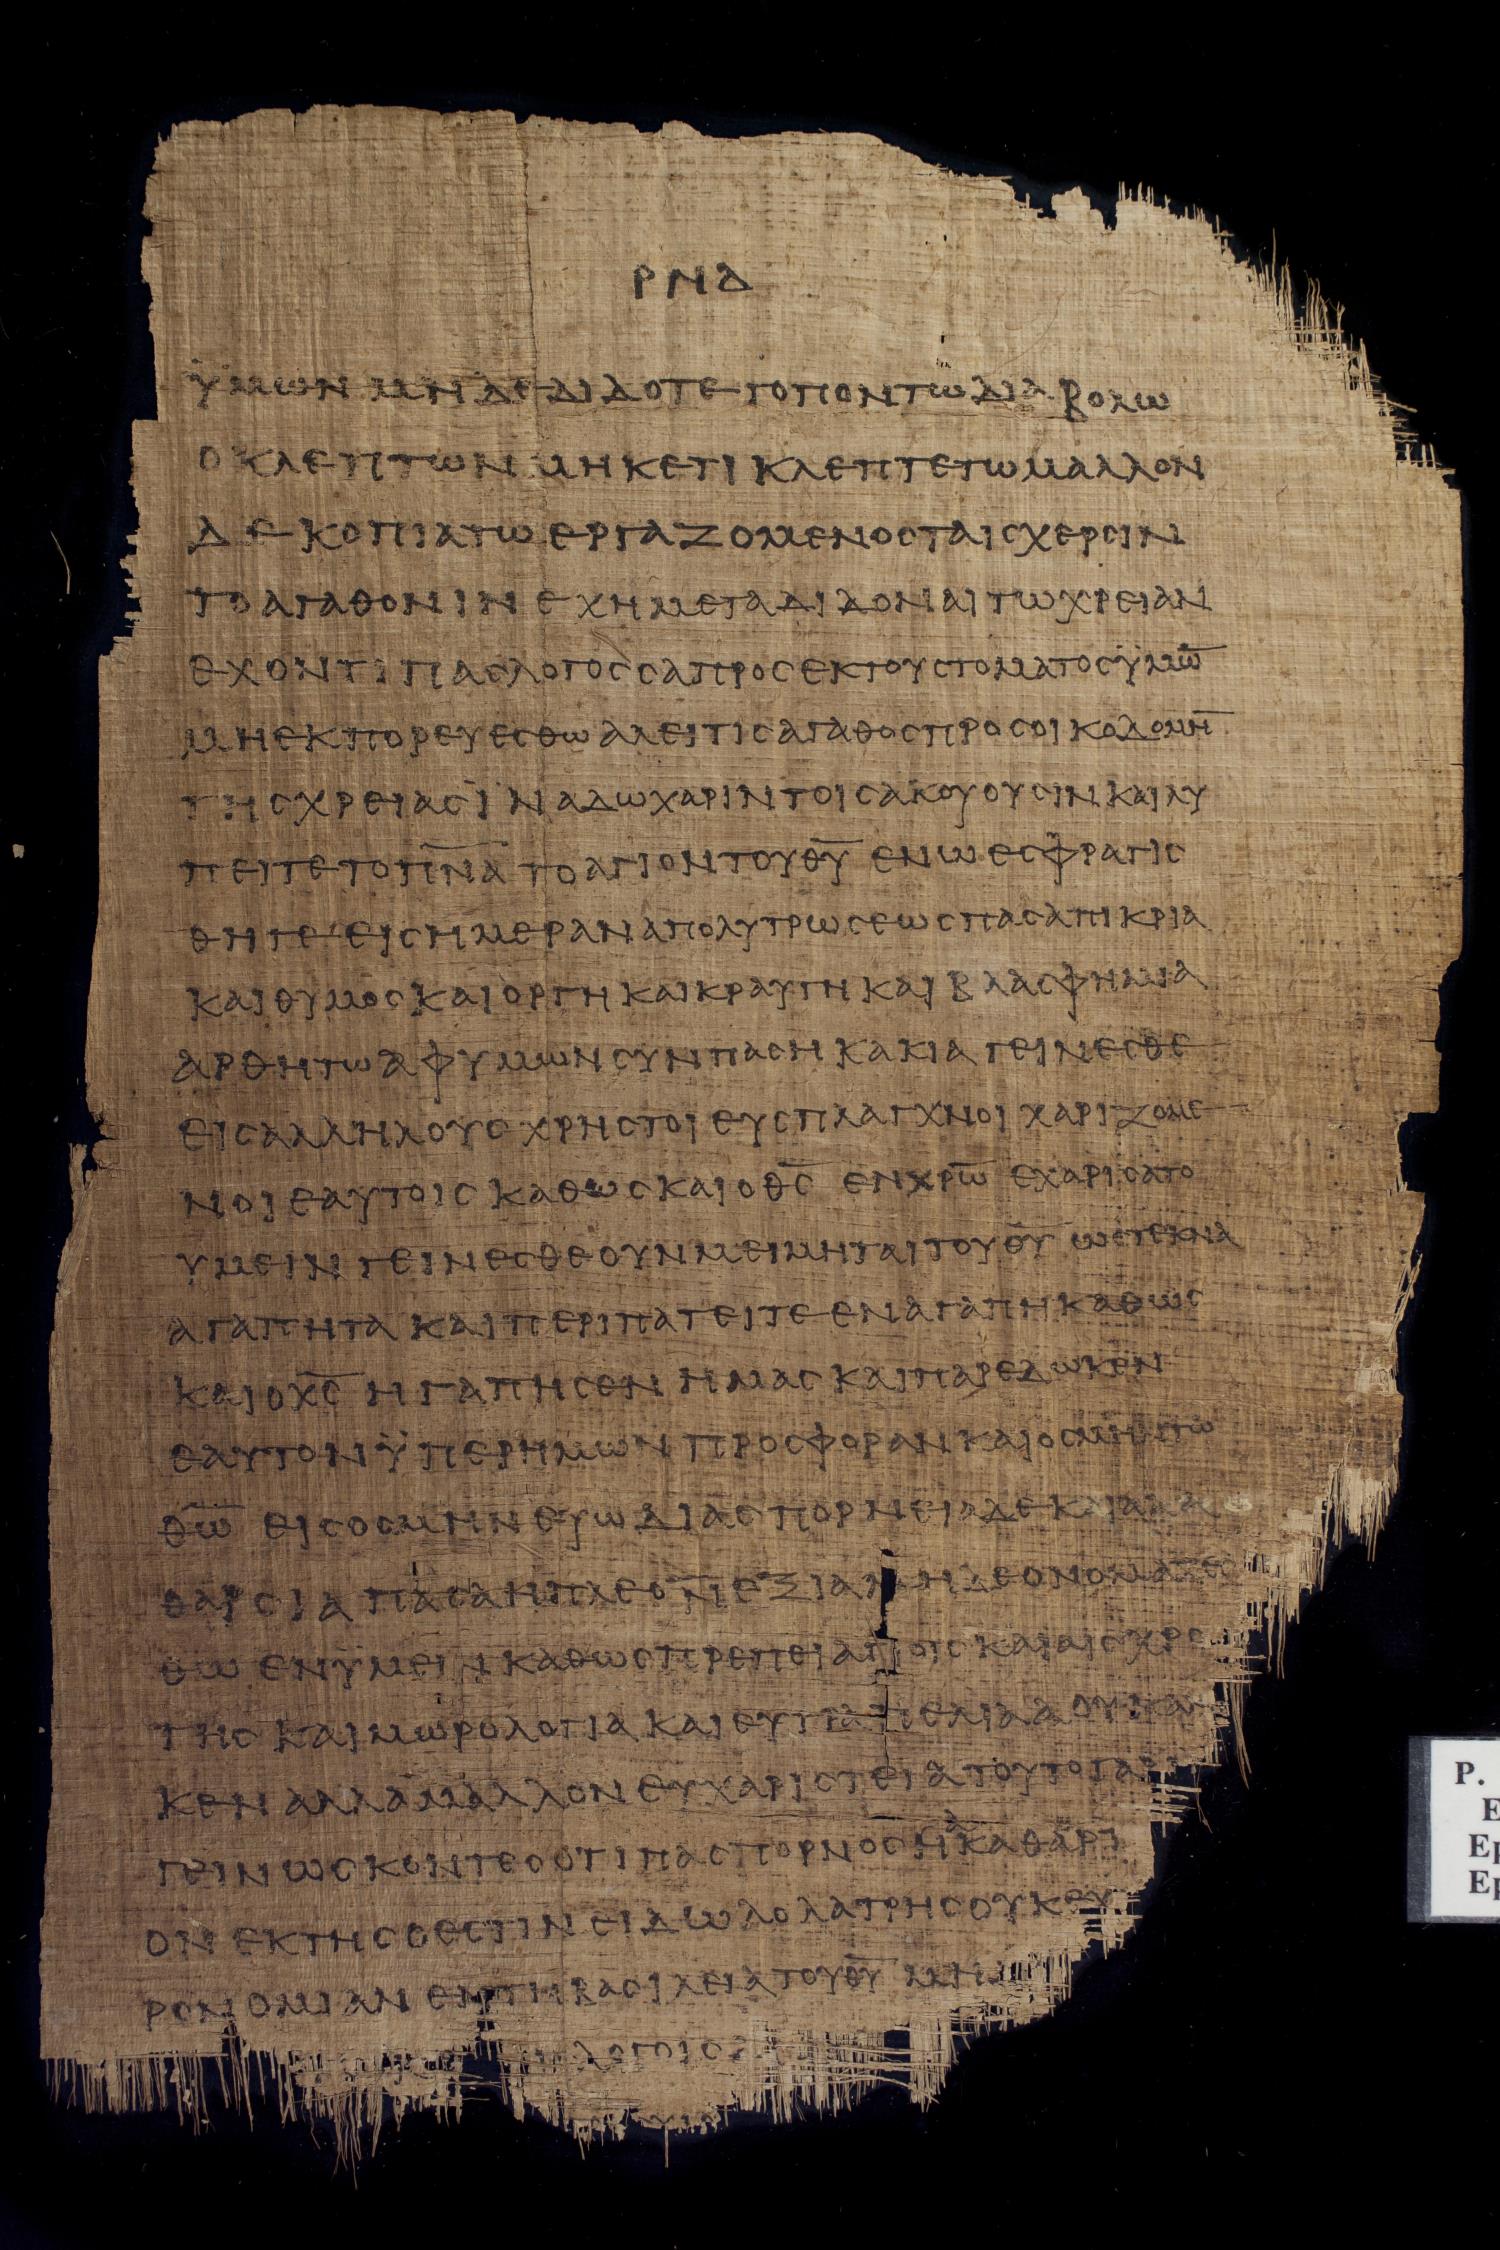 ΡΝΔ
ΥΜΩΝ ΜΗΔΕ ΔΙΔΟΤΕ ΤΟΠΟΝ ΤΩ ΔΙΑΒΟΛΩ
Ο ΚΛΕΠΤΩΝ ΜΗΚΕΤΙ ΚΛΕΠΤΕΤΩ ΜΑΛΛΟΝ
ΔΕ ΚΟΠΙΑΤΩ ΕΡΓΑΖΟΜΕΝΟΣ ΤΑΙΣ ΧΕΡΣΙΝ
ΤΟ ΑΓΑΘΟΝ ΙΝ ΕΧΗ ΜΕΤΑΔΙΔΟΝΑΙ ΤΩ ΧΡΕΙΑΝ
ΕΧΟΝΤΙ ΠΑΣ ΛΟΓΟΣ ΣΑΠΡΟΣ ΕΚ ΤΟΥ ΣΤΟΜΑΤΟΣ ΫΜΩ̅
ΜΗ ΕΚΠΟΡΕΥΕΣΘΩ ΑΛ ΕΙ ΤΙΣ ΑΓΑΘΟΣ ΠΡΟΣ ΟΙΚΟΔΟΜΗ̅
ΤΗΣ ΧΡΕΙΑΣ ΪΝΑ ΔΩ ΧΑΡΙΝ ΤΟΙΣ ΑΚΟΥΟΥΣΙΝ ΚΑΙ ΛΥ
ΠΕΙΤΕ ΤΟ Π̅Ν̅Α̅ ΤΟ ΑΓΙΟΝ ΤΟΥ Θ̅Υ̅ ΕΝ Ω ΕΣΦΡΑΓΙΣ
ΘΗΤΕ ΕΙΣ ΗΜΕΡΑΝ ΑΠΟΛΥΤΡΩΣΕΩΣ ΠΑΣΑ ΠΙΚΡΙΑ
ΚΑΙ ΘΥΜΟΣ ΚΑΙ ΟΡΓΗ ΚΑΙ ΚΡΑΥΓΗ ΚΑΙ ΒΛΑΣΦΗΜΙΑ
ΑΡΘΗΤΩ ΑΦ ΥΜΩΝ ΣΥΝ ΠΑΣΗ ΚΑΚΙΑ ΓΕΙΝΕΣΘΕ
ΕΙΣ ΑΛΛΗΛΟΥΣ ΧΡΗΣΤΟΙ ΕΥΣΠΛΑΓΧΝΟΙ ΧΑΡΙΖΟΜΕ
ΝΟΙ ΕΑΥΤΟΙΣ ΚΑΘΩΣ ΚΑΙ Ο Θ̅Σ̅ ΕΝ Χ̅Ρ̅Ω̅ ΕΧΑΡΙΣΑΤΟ
ΥΜΕΙΝ ΓΕΙΝΕΣΘΕ ΟΥΝ ΜΕΙΜΗΤΑΙ ΤΟΥ Θ̅Υ̅ ΩΣ ΤΕΚΝΑ
ΑΓΑΠΗΤΑ ΚΑΙ ΠΕΡΙΠΑΤΕΙΤΕ ΕΝ ΑΓΑΠΗ ΚΑΘΩΣ
ΚΑΙ Ο Χ̅Σ̅ ΗΓΑΠΗΣΕΝ ΗΜΑΣ ΚΑΙ ΠΑΡΕΔΩΚΕΝ
ΕΑΥΤΟΝ ΫΠΕΡ ΗΜΩΝ ΠΡΟΣΦΟΡΑΝ ΚΑΙ ΟΣΜΗ ΤΩ
Θ̅Ω̅ ΕΙΣ ΟΣΜΗΝ ΕΥΩΔΙΑΣ ΠΟΡΝΕΙΑ ΔΕ ΚΑΙ ΑΚΑ
ΘΑΡΣΙΑ ΠΑΣΑ Η ΠΛΕΟΝΕΞΙΑ ΜΗΔΕ ΟΝΟΜΑΖΕΣ
ΘΩ ΕΝ ΥΜΕΙΝ ΚΑΘΩΣ ΠΡΕΠΕΙ ΑΓΙΟΙΣ ΚΑΙ ΑΙΣΧΡΟ
ΤΗΣ ΚΑΙ ΜΩΡΟΛΟΓΙΑ ΚΑΙ ΕΥΤΡΑΠΕΛΙΑ Α ΟΥΚ ΑΝ
ΚΕΝ ΑΛΛΑ ΜΑΛΛΟΝ ΕΥΧΑΡΙΣΤΕΙΑ ΤΟΥΤΟ ΓΑΡ
ΓΕΙΝΩΣΚΟΝΤΕΣ ΟΤΙ ΠΑΣ ΠΟΡΝΟΣ Η ΑΚΑΘΑΡ
ΕΣΤΙΝ ΕΙΔΩΛΟΛΑΤΡΗΣ ΟΥΚ
ΡΟΝΟΜΙΑΝ ΕΝ ΤΗ ΒΑΣΙΛΕΙΑ ΤΟΥ Θ̅Υ̅ ΜΗ
ΛΟΓΟΙΣ
P.
E
Ep
Ep